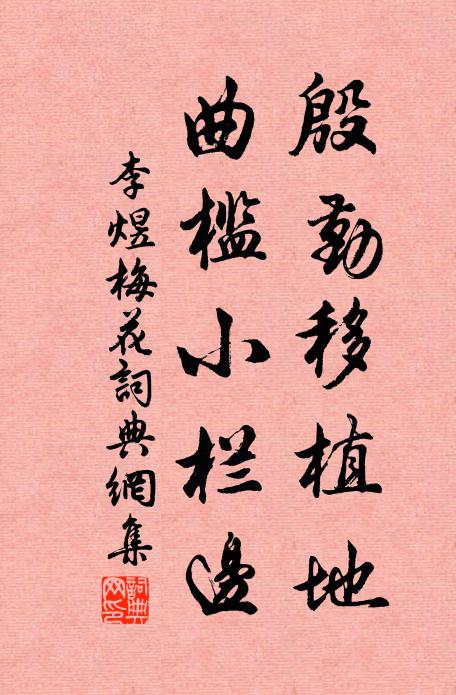 殷勤移植地
曲檻小栏邊
李煜梅花詞典網集
詞典网印